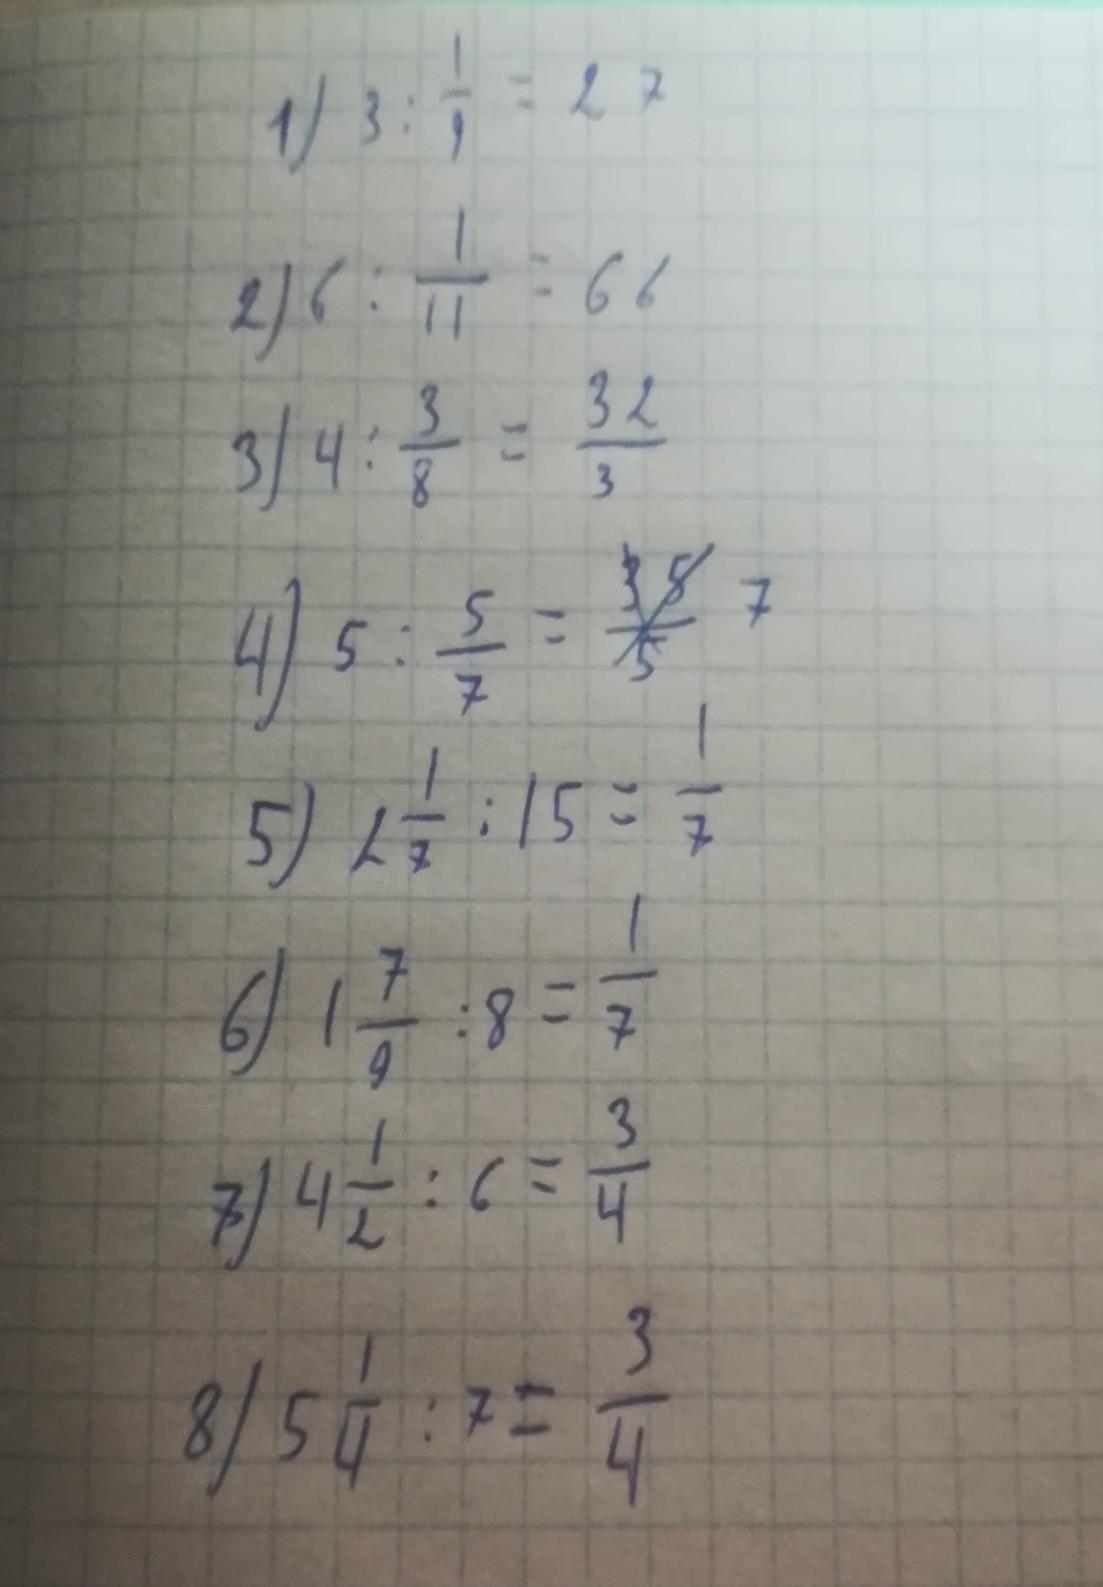 1) 3 : 1/9 = 27
2) 6 : 1/11 = 66
3) 4 : 3/8 = 32/3
4) 5 : 5/7 = 35/5 7
5) 2 1/7 : 15 = 1/7
6) 1 7/9 : 8 = 1/7
7) 4 1/2 : 6 = 3/4
8) 5 1/4 : 7 = 3/4